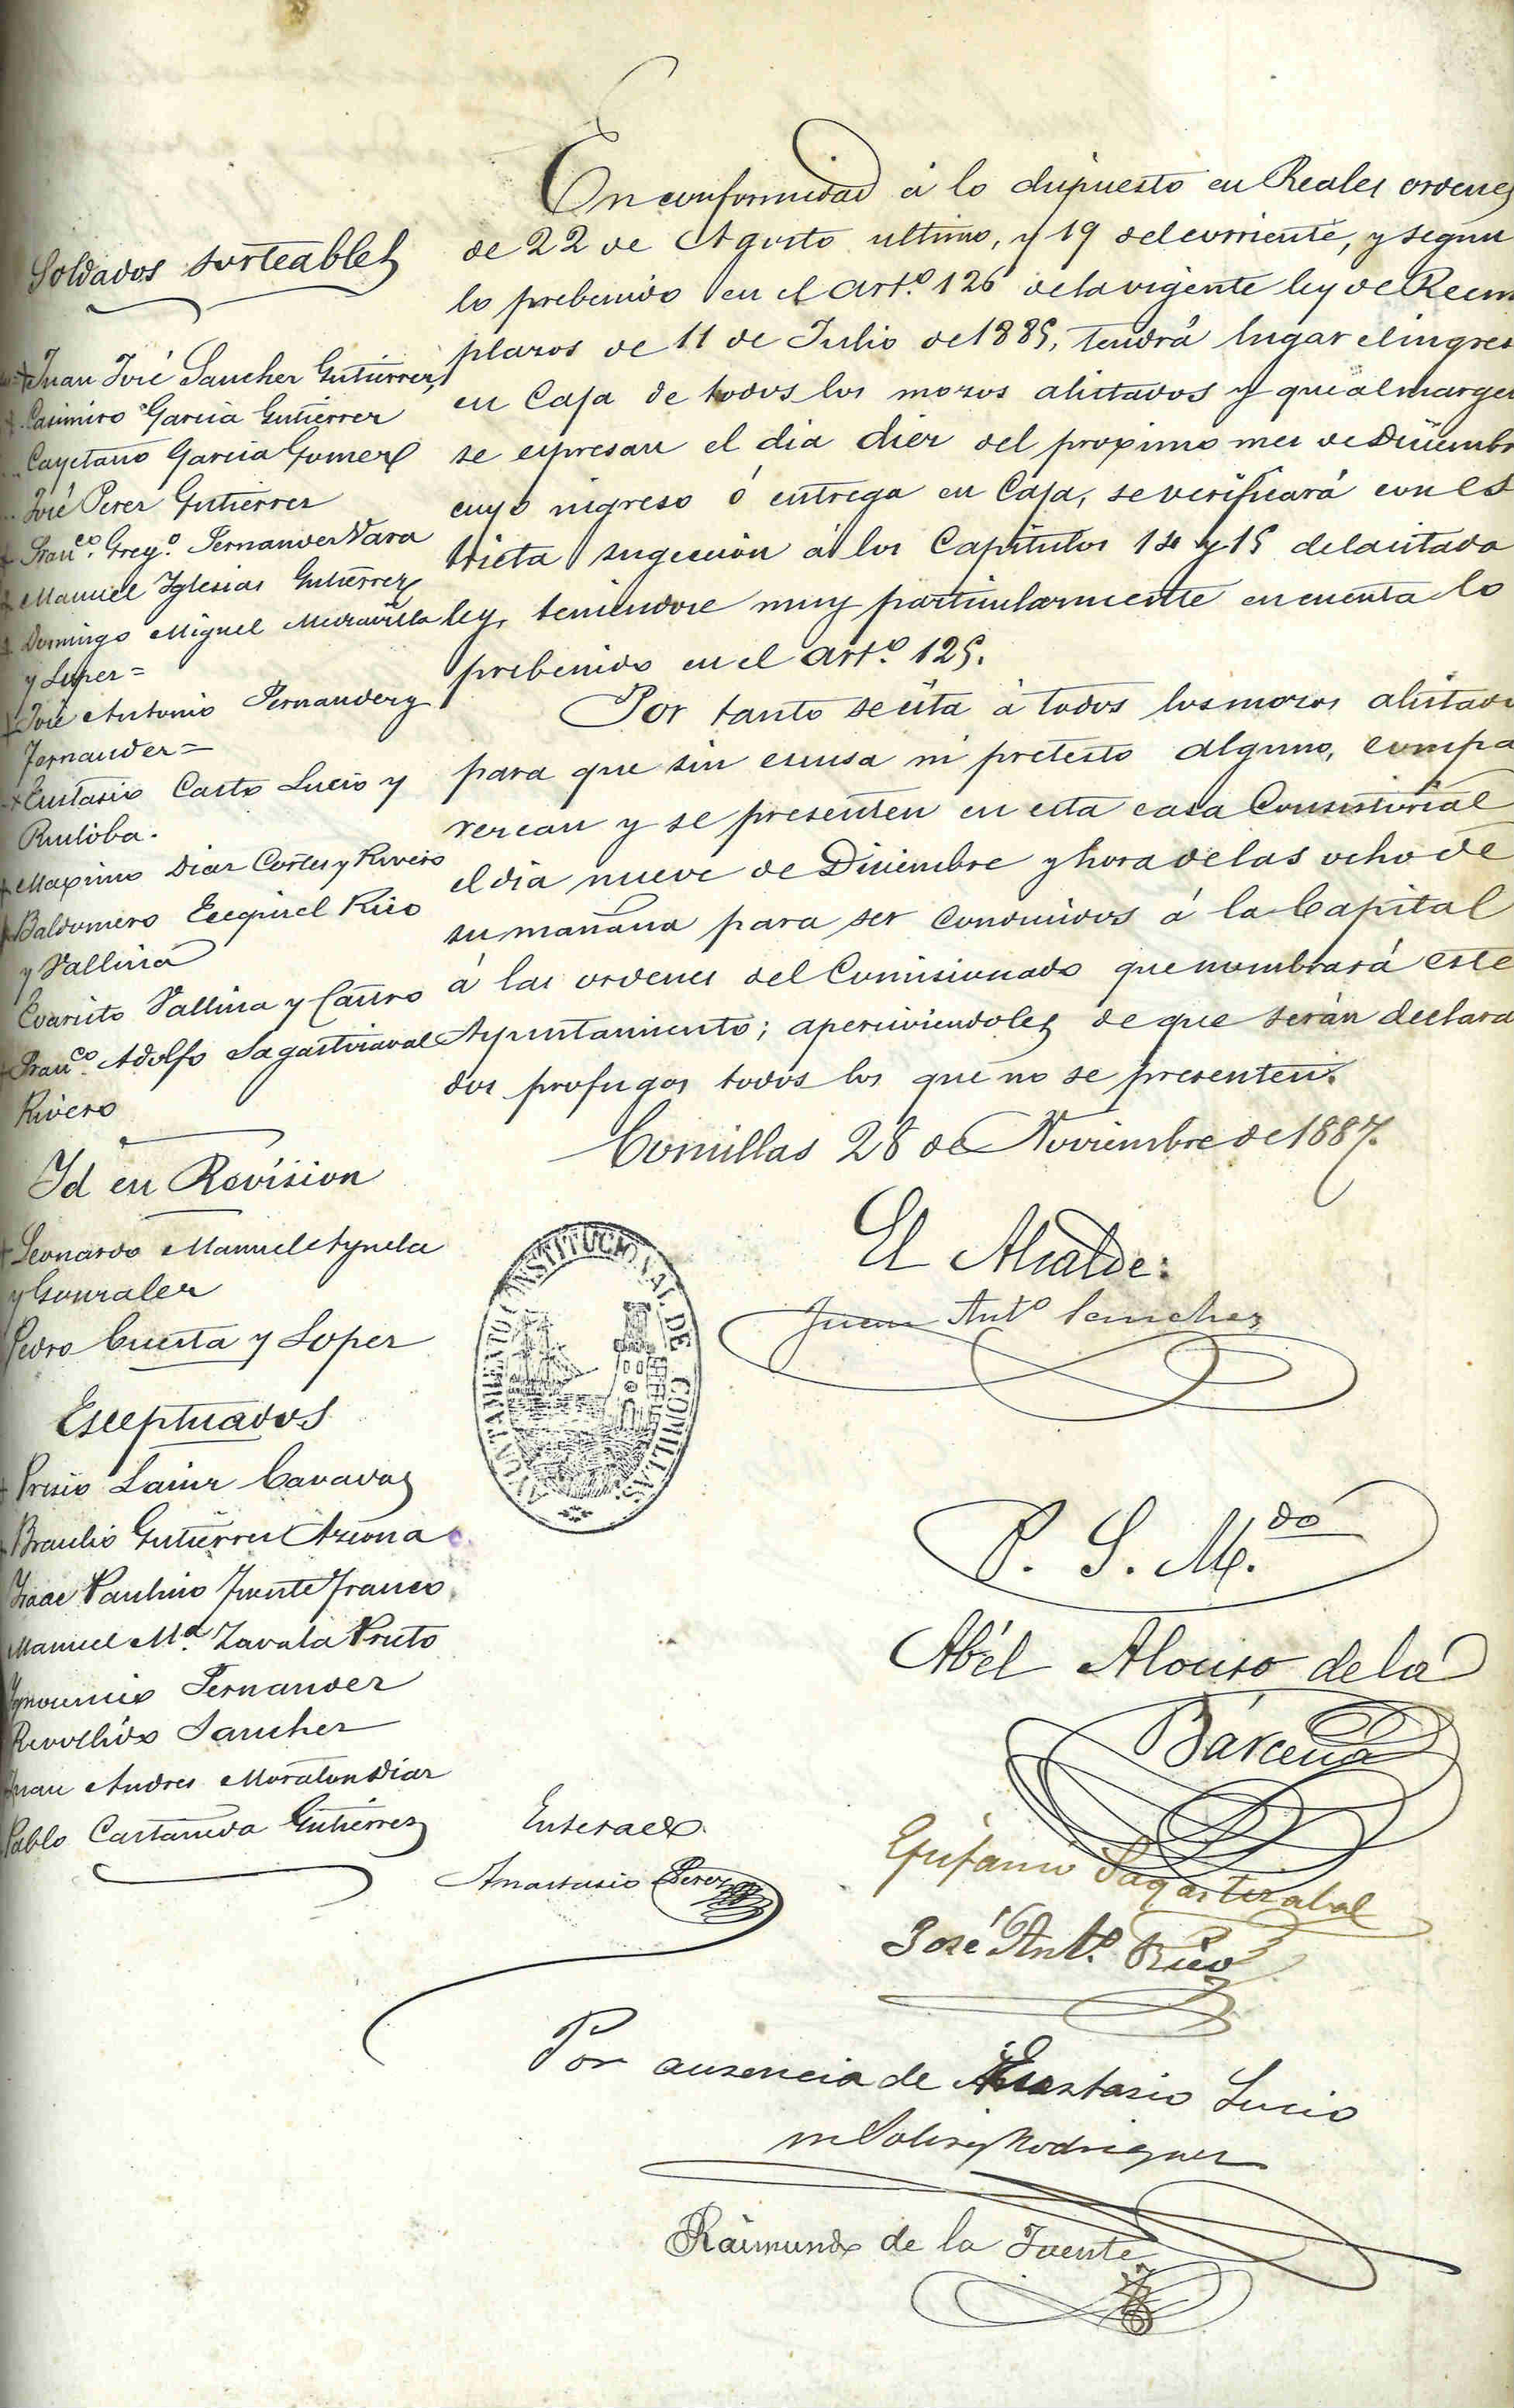 Soldados sorteables
Juan José Sanchez Gutierrez,
Casimiro Garcia Gutierrez
Cayetano Garcia Gomez
José Perez Gutierrez
Fran.co Greg.o Fernandez Vara
Manuel Yglesias Gutierrez
Domingo Miguel
y Lopez=
José Antonio Fernandez y
Fernandez=
Eustasio Casto Lucio y
Ruiloba.
Maximo Diaz Cortes y Rivero
Baldomero Ecequiel Rico
y Vallina
Evaristo Vallina y Castro
Fran.co Adolfo Sagastizabal
Rivero
Id en Revision
Leonardo Manuel
y Gonzalez
Pedro Cuesta y Lopez
Eseptuados
Sainz
Braulio Gutierrez
Isaac Paulino Fuente Franco
Manuel M.a Zavala Prieto
Ynocencio Fernandez
Revollido Sanchez
Juan Andres Moraton Diaz
Pablo Castañeda Gutierrez
En conformidad á lo dispuesto en Reales ordenes
de 22 de Agosto ultimo, y 19 del corriente, y segun
lo prebenido en el art.o 126 de la vigente ley de Reem
plazos de 11 de Julio de 1885, tendrá lugar el ingres
en Caja de todos los mozos alistados y que al margen
se espresan el dia diez del proximo mes de Diciembr
cuyo ingreso ó entrega en Caja, se verificará con es
tricta sugeccion á los Capitulos 14 y 15 de la citada
ley, teniendose muy particularmente en cuenta lo
prebenido en el art.o 125.
Por tanto se cita á todos los mozos alistado
para que sin escusa ni pretesto alguno, compa
rezcan y se presenten en esta casa Consistorial
el dia nueve de Diciembre y hora de las ocho de
su mañana para ser conducidos á la Capital
á las ordenes del Comisionado que nombrará este
Ayuntamiento; aperciviendoles de que serán declara
dos profugos todos los que no se presenten.
Comillas 28 de Noviembre de 1887.
El Alcalde:
Juan Ant.o Sanchez
AYUNTAMIENTO CONSTITUCIONAL DE COMILLAS.
P. S. M.do
Abél Alonso de la
Bárcena
Enterado.
Anastasio Perez
Epifanio Sagastizabal
José Ant.o Rico
Por ausencia de Eustasio Lucio
Rodriguez
Raimundo de la Fuente